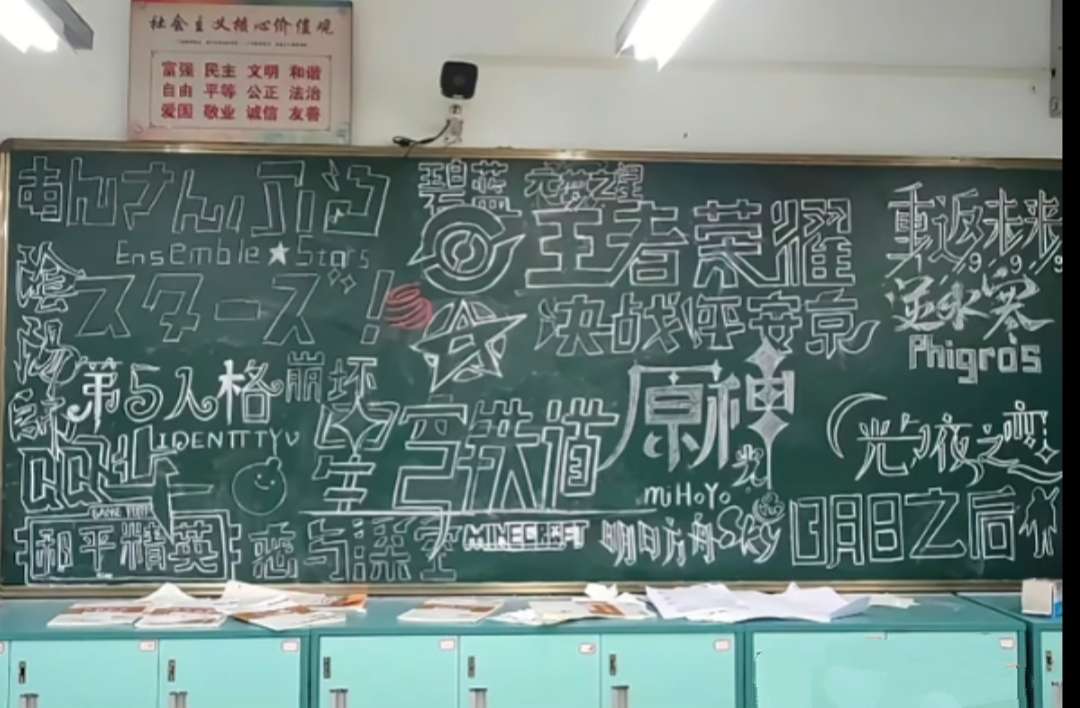 社会主义核心价值观
富强 民主 文明 和谐
自由 平等 公正 法治
爱国 敬业 诚信 友善
あんさんぶる
Ensemble★Stars
スターズ!
碧蓝
元梦之星
王者荣耀
决战平安京
重返未来
1999
逆水寒
Phigros
陰陽師
第5人格
IDENTITY V
崩坏
星穹铁道
原神
miHoYo
光夜之恋
和平精英
恋与深空
MINECRAFT
明日方舟
光
Sky
明日之后